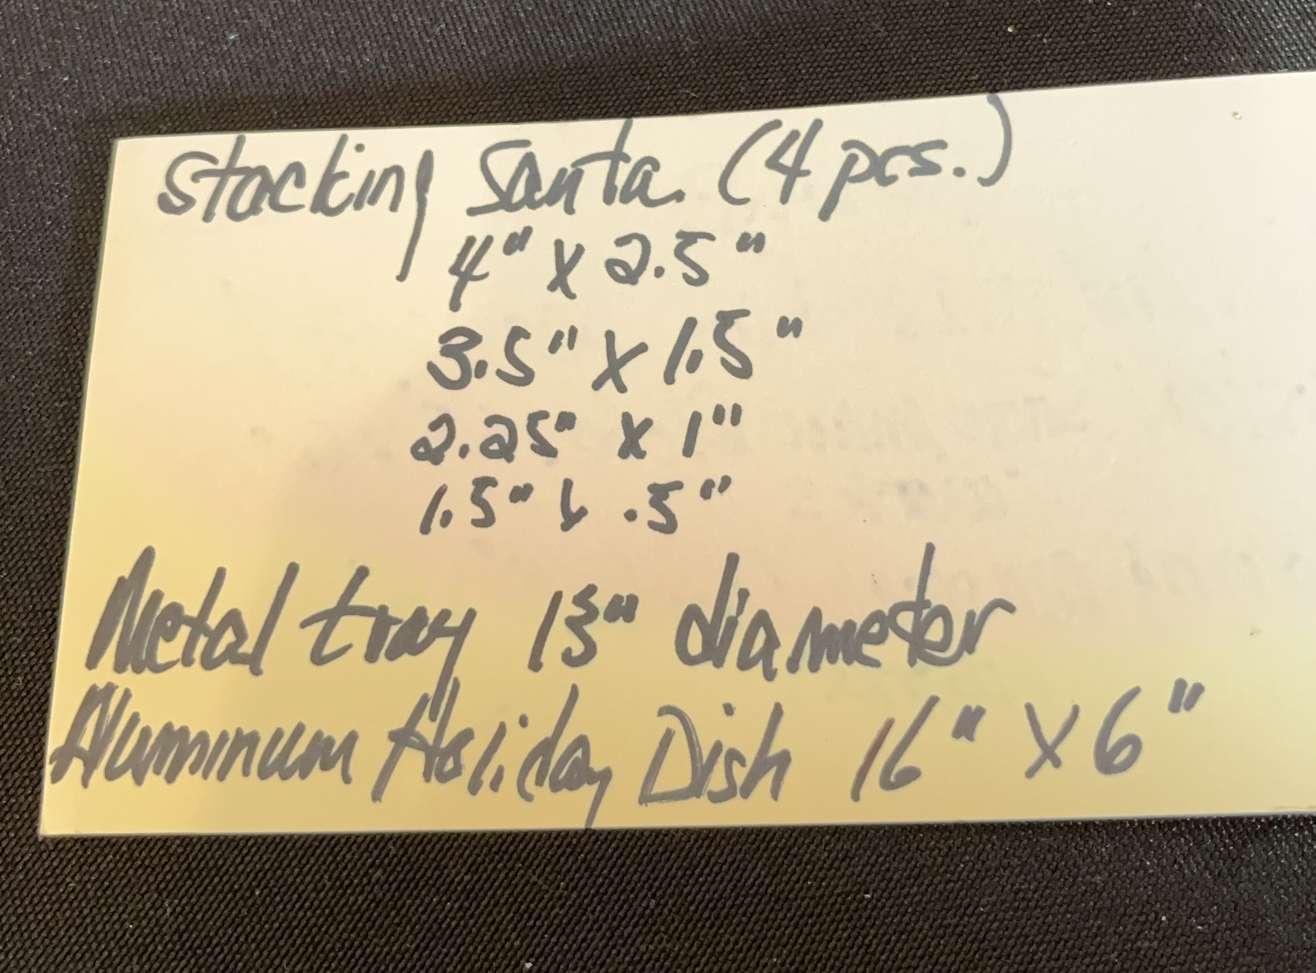 Stacking Santa (4 pcs.)
4" x 2.5"
3.5" x 1.5"
2.25" x 1"
1.5" x .5"
Metal tray 13" diameter
Aluminum Holiday Dish 16" x 6"